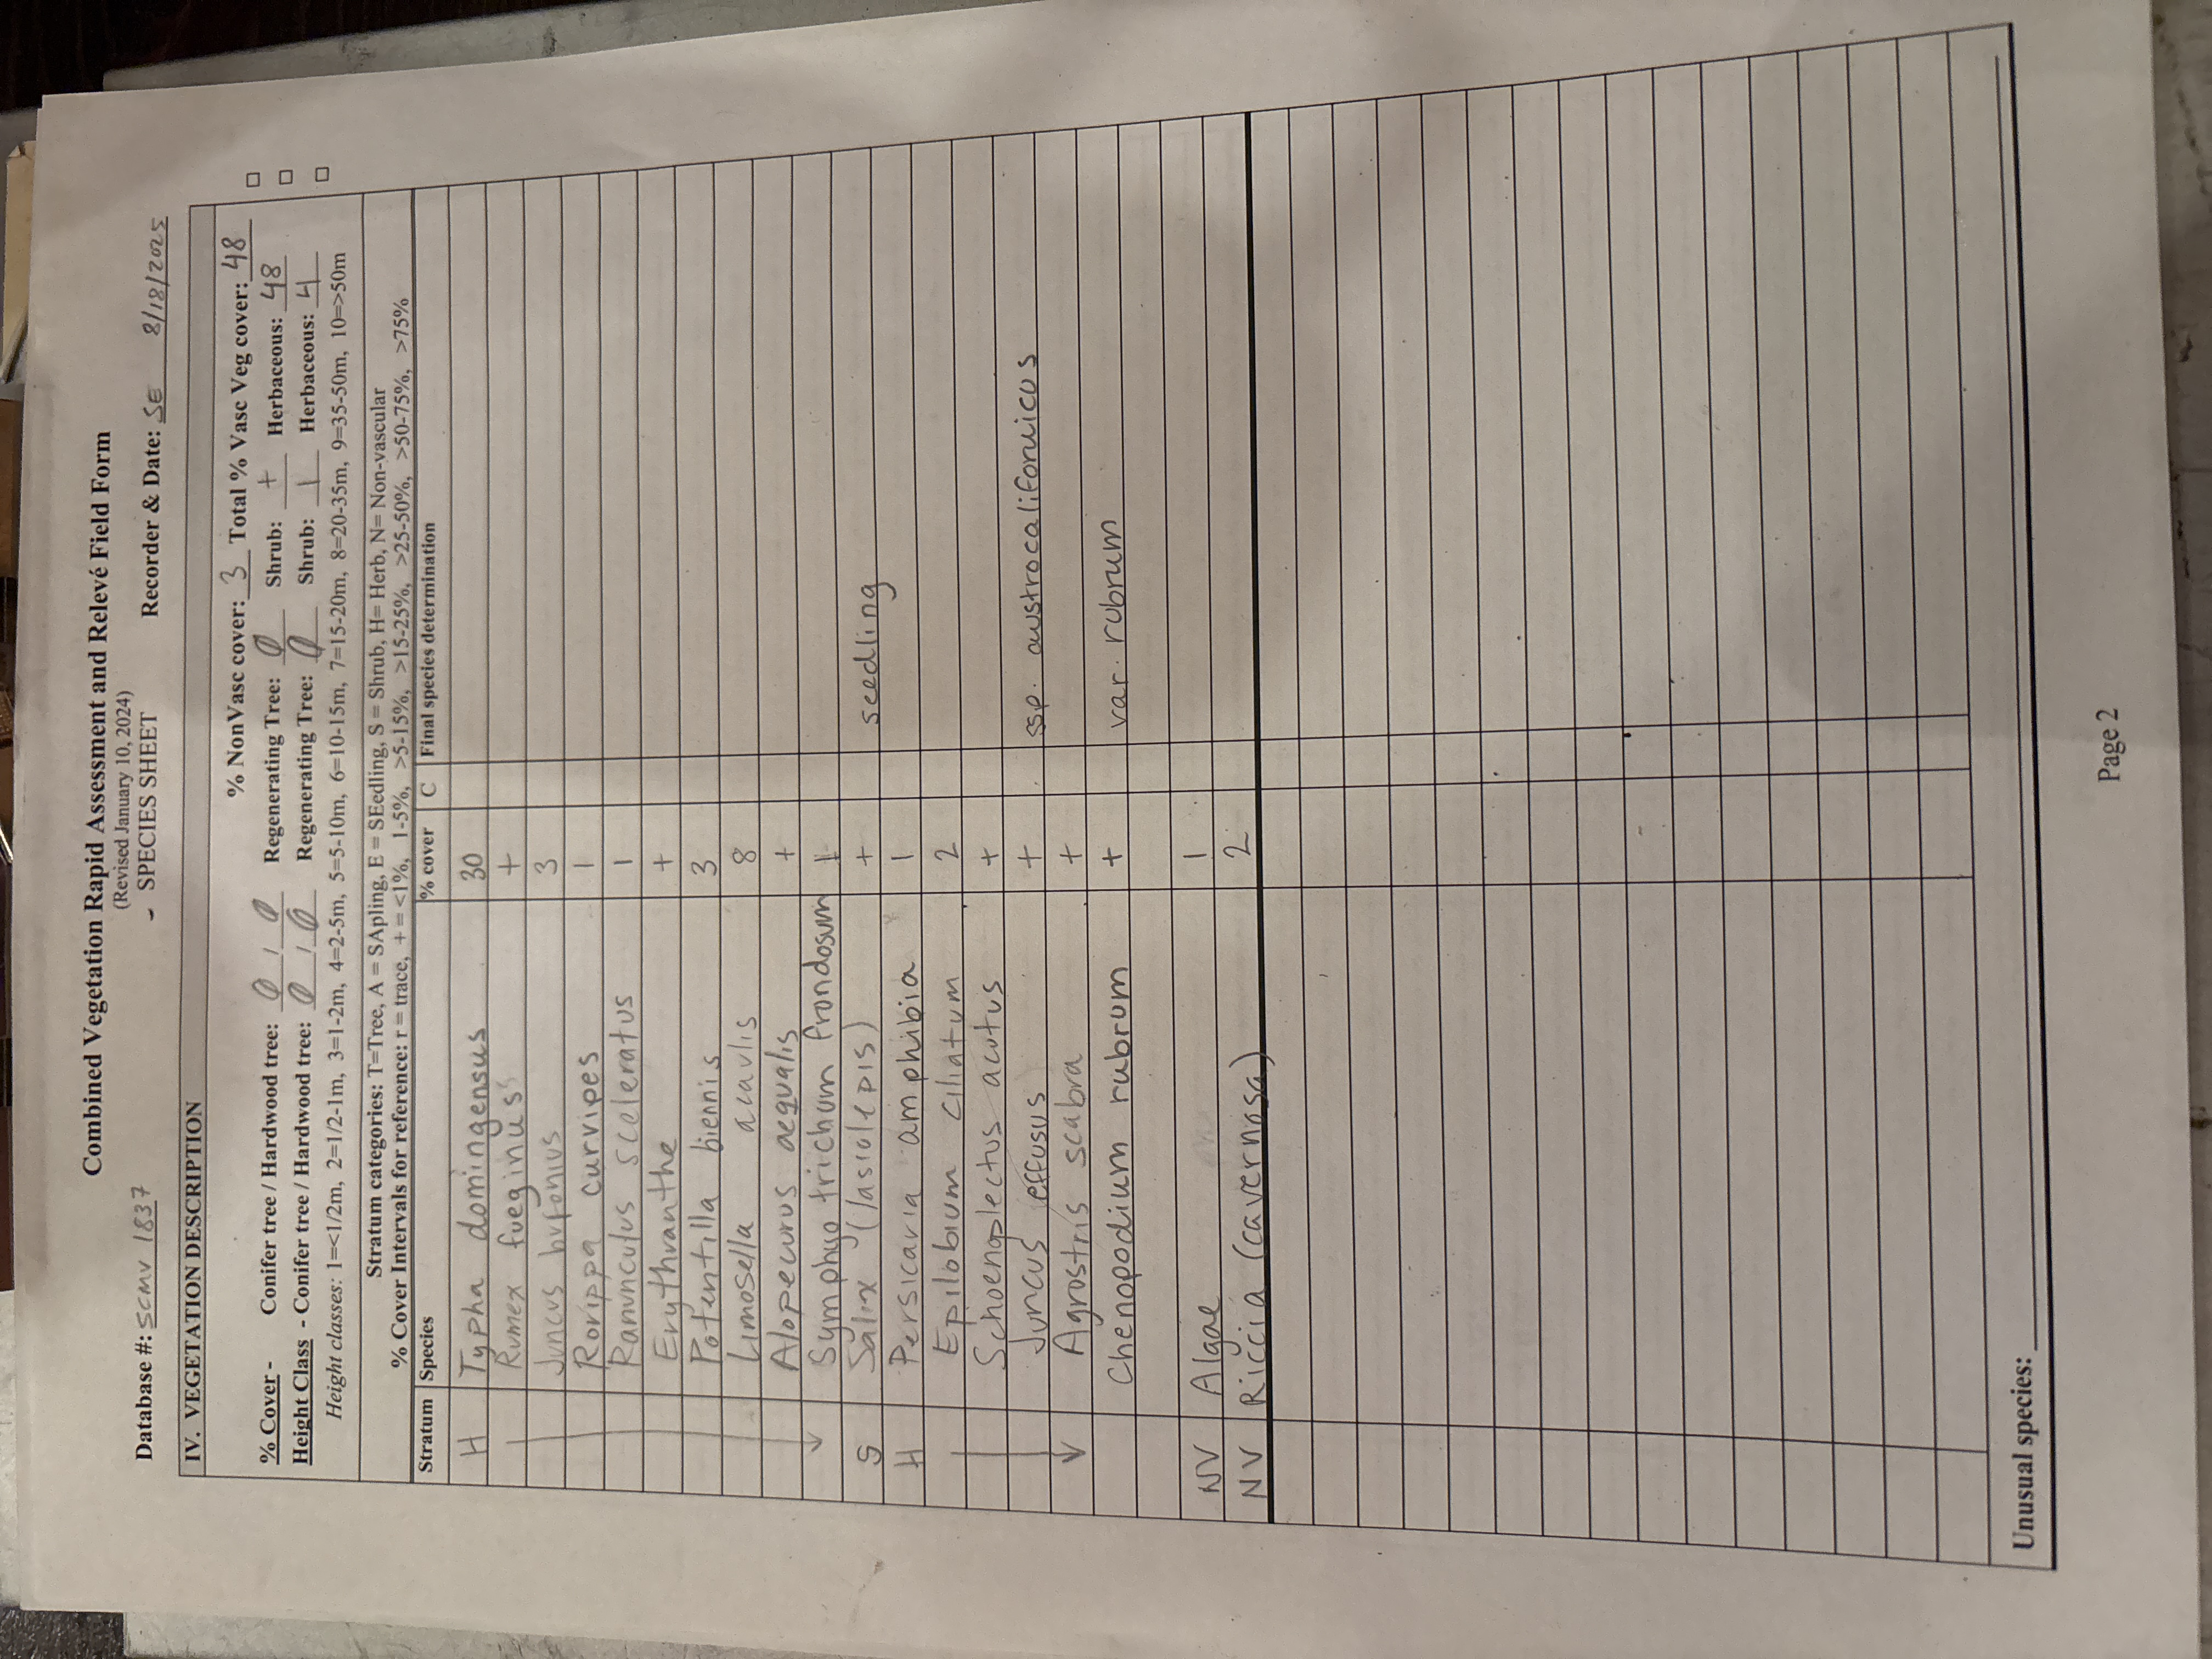 Combined Vegetation Rapid Assessment and Relevé Field Form
(Revised January 10, 2024)
- SPECIES SHEET
Database #: SCMV 1837 Recorder & Date: SE 8/18/2025
IV. VEGETATION DESCRIPTION
% NonVasc cover: 3 Total % Vasc Veg cover: 48 □
% Cover - Conifer tree / Hardwood tree: 0 / 0 Regenerating Tree: 0 Shrub: + Herbaceous: 48 □
Height Class - Conifer tree / Hardwood tree: 0 / 0 Regenerating Tree: 0 Shrub: 1 Herbaceous: 4 □
Height classes: 1=<1/2m, 2=1/2-1m, 3=1-2m, 4=2-5m, 5=5-10m, 6=10-15m, 7=15-20m, 8=20-35m, 9=35-50m, 10=>50m
Stratum categories: T=Tree, A = SApling, E = SEedling, S = Shrub, H= Herb, N= Non-vascular
% Cover Intervals for reference: r = trace, + = <1%, 1-5%, >5-15%, >15-25%, >25-50%, >50-75%, >75%
Stratum Species % cover C Final species determination
H Typha domingensus 30
Rumex fueginus +
Juncus bufonius 3
Rorippa curvipes 1
Ranunculus sceleratus 1
Erythranthe +
Potentilla biennis 3
Limosella acaulis 8
Alopecurus aequalis +
Symphyotrichum frondosum
S Salix (lasiolepis) + seedling
H Persicaria amphibia 1
Epilobium ciliatum 2
Schoenoplectus acutus +
Juncus effusus + ssp. austrocalifornicus
Agrostris scabra +
Chenopodium rubrum + var. rubrum
NV Algae 1
NV Riccia (cavernosa) 2
Unusual species:
Page 2